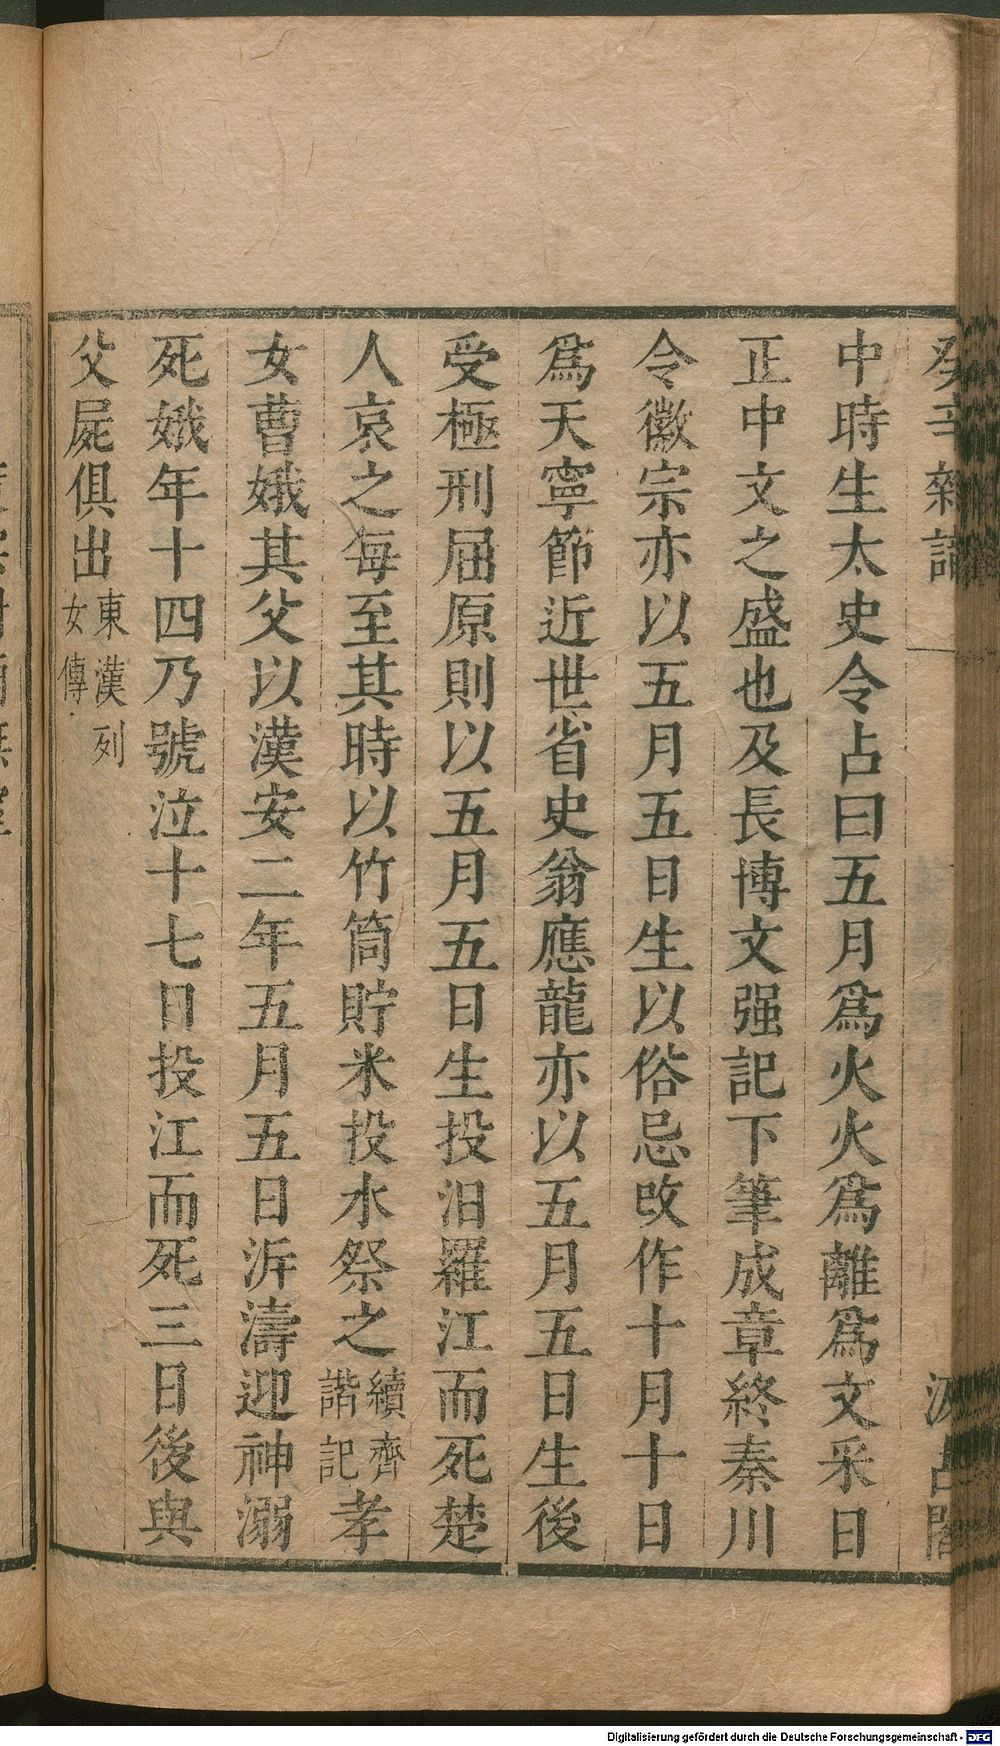 癸辛雜識
汲古閣
中時生太史令占曰五月爲火火爲離爲文采日
正中文之盛也及長博文强記下筆成章終秦川
令徽宗亦以五月五日生以俗忌改作十月十日
爲天寧節近世省史翁應龍亦以五月五日生後
受極刑屈原則以五月五日生投汨羅江而死楚
人哀之每至其時以竹筒貯米投水祭之續齊諧記孝
女曹娥其父以漢安二年五月五日泝濤迎神溺
死娥年十四乃號泣十七日投江而死三日後與
父屍俱出東漢列女傳
Digitalisierung gefördert durch die Deutsche Forschungsgemeinschaft - DFG